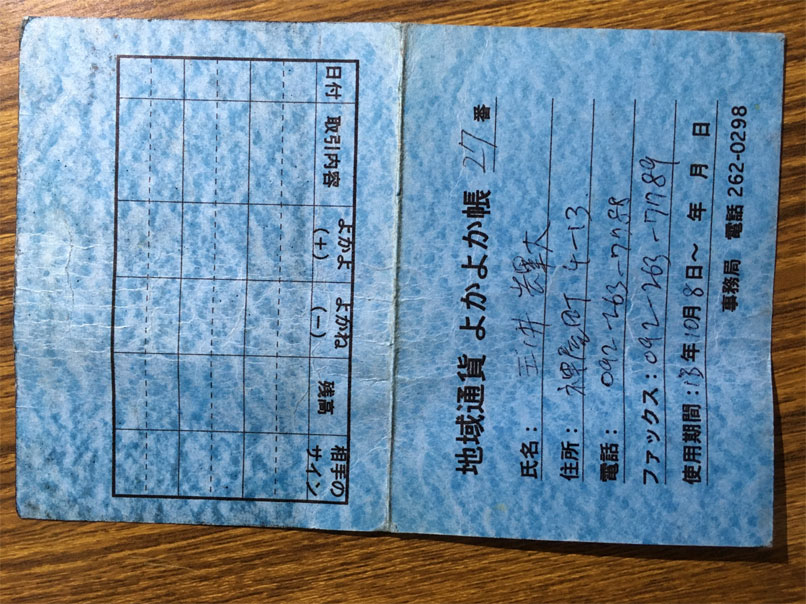 地域通貨 よかよか帳 27 番
氏名：三井
住所：神屋町 4-13
電話：092-263-7788
ファックス：092-263-7789
使用期間：13年10月8日～ 年 月 日
事務局 電話 262-0298
日付 取引内容 よかよ(＋) よかね(－) 残高 相手のサイン